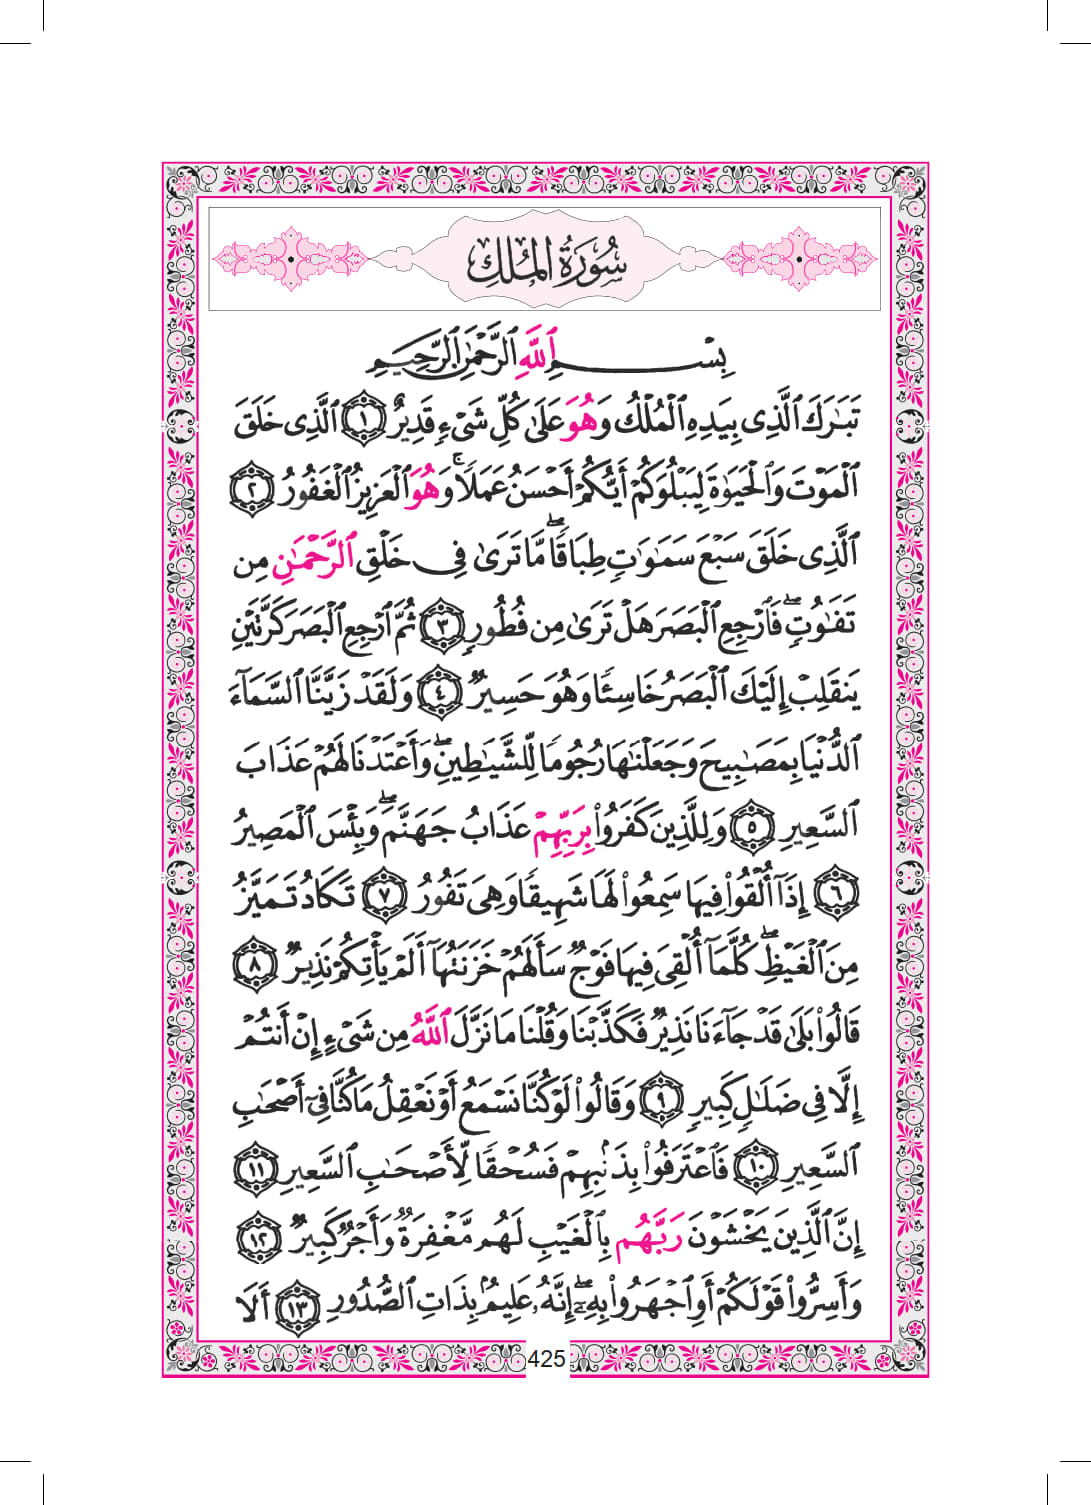 سُورَةُ الْمُلْكِ
بِسْمِ ٱللَّهِ ٱلرَّحْمَٰنِ ٱلرَّحِيمِ
تَبَٰرَكَ ٱلَّذِى بِيَدِهِ ٱلْمُلْكُ وَهُوَ عَلَىٰ كُلِّ شَىْءٍ قَدِيرٌ ١ ٱلَّذِى خَلَقَ
ٱلْمَوْتَ وَٱلْحَيَوٰةَ لِيَبْلُوَكُمْ أَيُّكُمْ أَحْسَنُ عَمَلًا ۚ وَهُوَ ٱلْعَزِيزُ ٱلْغَفُورُ ٢
ٱلَّذِى خَلَقَ سَبْعَ سَمَٰوَٰتٍ طِبَاقًا ۖ مَّا تَرَىٰ فِى خَلْقِ ٱلرَّحْمَٰنِ مِن
تَفَٰوُتٍ ۖ فَٱرْجِعِ ٱلْبَصَرَ هَلْ تَرَىٰ مِن فُطُورٍ ٣ ثُمَّ ٱرْجِعِ ٱلْبَصَرَ كَرَّتَيْنِ
يَنقَلِبْ إِلَيْكَ ٱلْبَصَرُ خَاسِئًا وَهُوَ حَسِيرٌ ٤ وَلَقَدْ زَيَّنَّا ٱلسَّمَآءَ
ٱلدُّنْيَا بِمَصَٰبِيحَ وَجَعَلْنَٰهَا رُجُومًا لِّلشَّيَٰطِينِ ۖ وَأَعْتَدْنَا لَهُمْ عَذَابَ
ٱلسَّعِيرِ ٥ وَلِلَّذِينَ كَفَرُوا۟ بِرَبِّهِمْ عَذَابُ جَهَنَّمَ ۖ وَبِئْسَ ٱلْمَصِيرُ
٦ إِذَآ أُلْقُوا۟ فِيهَا سَمِعُوا۟ لَهَا شَهِيقًا وَهِىَ تَفُورُ ٧ تَكَادُ تَمَيَّزُ
مِنَ ٱلْغَيْظِ ۖ كُلَّمَآ أُلْقِىَ فِيهَا فَوْجٌ سَأَلَهُمْ خَزَنَتُهَآ أَلَمْ يَأْتِكُمْ نَذِيرٌ ٨
قَالُوا۟ بَلَىٰ قَدْ جَآءَنَا نَذِيرٌ فَكَذَّبْنَا وَقُلْنَا مَا نَزَّلَ ٱللَّهُ مِن شَىْءٍ إِنْ أَنتُمْ
إِلَّا فِى ضَلَٰلٍ كَبِيرٍ ٩ وَقَالُوا۟ لَوْ كُنَّا نَسْمَعُ أَوْ نَعْقِلُ مَا كُنَّا فِىٓ أَصْحَٰبِ
ٱلسَّعِيرِ ١٠ فَٱعْتَرَفُوا۟ بِذَنۢبِهِمْ فَسُحْقًا لِّأَصْحَٰبِ ٱلسَّعِيرِ ١١
إِنَّ ٱلَّذِينَ يَخْشَوْنَ رَبَّهُم بِٱلْغَيْبِ لَهُم مَّغْفِرَةٌ وَأَجْرٌ كَبِيرٌ ١٢
وَأَسِرُّوا۟ قَوْلَكُمْ أَوِ ٱجْهَرُوا۟ بِهِۦٓ ۖ إِنَّهُۥ عَلِيمٌۢ بِذَاتِ ٱلصُّدُورِ ١٣ أَلَا
425